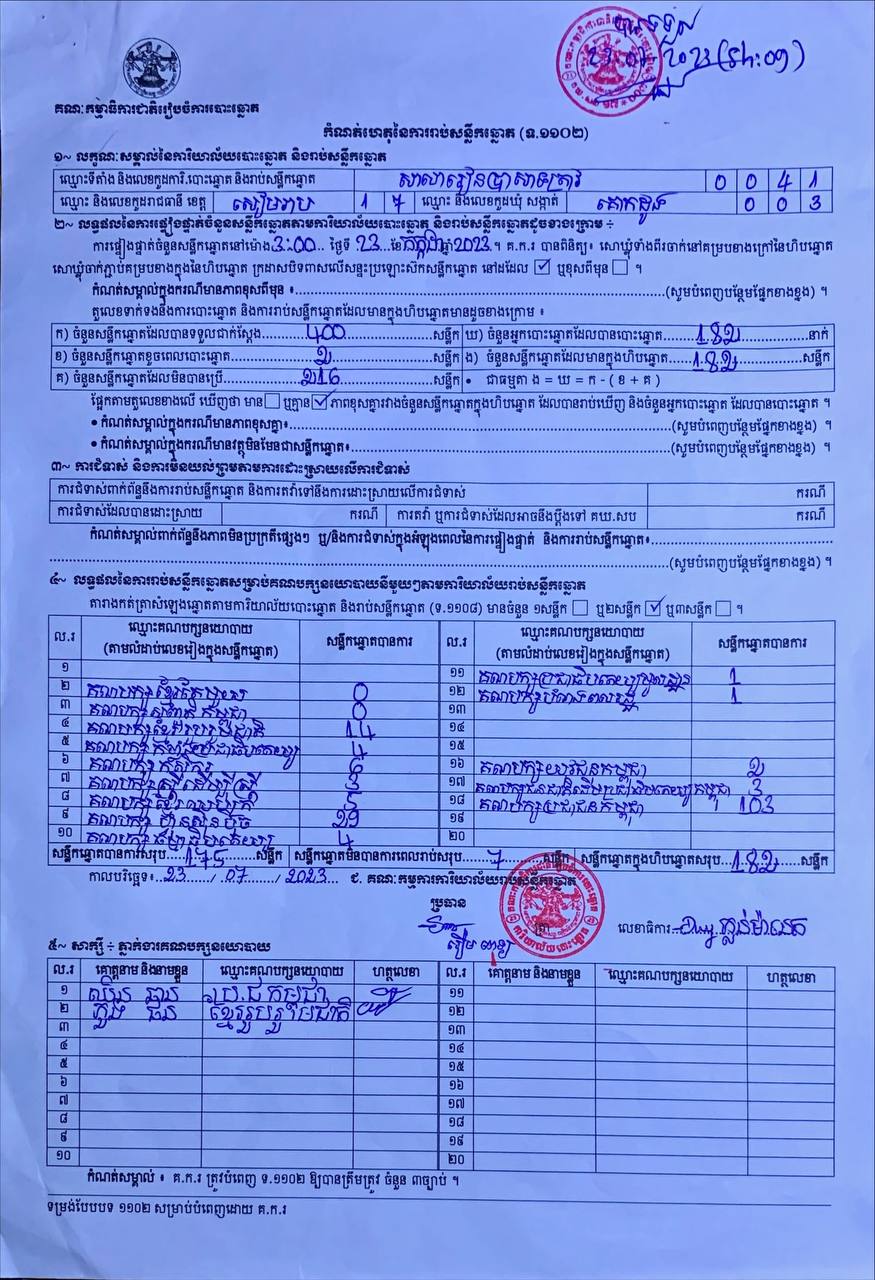 បានទទួល
23.07.2023
គណៈកម្មាធិការជាតិរៀបចំការបោះឆ្នោត
កំណត់ហេតុនៃការរាប់សន្លឹកឆ្នោត (ទ.១១០២)
១~ លក្ខណៈសម្គាល់នៃការិយាល័យបោះឆ្នោត និងរាប់សន្លឹកឆ្នោត
ឈ្មោះទីតាំង និងលេខកូដការិ.បោះឆ្នោត និងរាប់សន្លឹកឆ្នោត សាលារៀនប្រាសាទត្រាវ 0 0 4 1
ឈ្មោះ និងលេខកូដរាជធានី ខេត្ត សៀមរាប 1 7 ឈ្មោះ និងលេខកូដឃុំ សង្កាត់ គោកដូង 0 0 3
២~ លទ្ធផលនៃការផ្ទៀងផ្ទាត់ចំនួនសន្លឹកឆ្នោតតាមការិយាល័យបោះឆ្នោត និងរាប់សន្លឹកឆ្នោតដូចខាងក្រោម ÷
ការផ្ទៀងផ្ទាត់ចំនួនសន្លឹកឆ្នោតនៅម៉ោង 3:00 ថ្ងៃទី 23 ខែ កក្កដា ឆ្នាំ 2023 ។ គ.ក.រ បានពិនិត្យ៖ សោឃ្លុំទាំងពីរចាក់នៅគម្របខាងក្រៅនៃហិបឆ្នោត
សោឃ្លុំចាក់ភ្ជាប់គម្របខាងក្នុងនៃហិបឆ្នោត ក្រដាសបិទពាសលើសន្ទះប្រឡោះស៊កសន្លឹកឆ្នោត នៅដដែល ☑ ឬខុសពីមុន ☐ ។
កំណត់សម្គាល់ក្នុងករណីមានភាពខុសពីមុន ៖ (សូមបំពេញបន្ថែមផ្នែកខាងខ្នង) ។
តួលេខទាក់ទងនឹងការបោះឆ្នោត និងការរាប់សន្លឹកឆ្នោតដែលមានក្នុងហិបឆ្នោតមានដូចខាងក្រោម ៖
ក) ចំនួនសន្លឹកឆ្នោតដែលបានទទួលជាក់ស្តែង 400 សន្លឹក ឃ) ចំនួនអ្នកបោះឆ្នោតដែលបានបោះឆ្នោត 182 នាក់
ខ) ចំនួនសន្លឹកឆ្នោតខូចពេលបោះឆ្នោត 2 សន្លឹក ង) ចំនួនសន្លឹកឆ្នោតដែលមានក្នុងហិបឆ្នោត 182 សន្លឹក
គ) ចំនួនសន្លឹកឆ្នោតដែលមិនបានប្រើ 216 សន្លឹក • ជាធម្មតា ង = ឃ = ក - ( ខ + គ )
ផ្អែកតាមតួលេខខាងលើ ឃើញថា មាន ☐ ឬគ្មាន ☑ ភាពខុសគ្នារវាងចំនួនសន្លឹកឆ្នោតក្នុងហិបឆ្នោត ដែលបានរាប់ឃើញ និងចំនួនអ្នកបោះឆ្នោត ដែលបានបោះឆ្នោត ។
• កំណត់សម្គាល់ក្នុងករណីមានភាពខុសគ្នា៖ (សូមបំពេញបន្ថែមផ្នែកខាងខ្នង) ។
• កំណត់សម្គាល់ក្នុងករណីមានវត្ថុមិនមែនជាសន្លឹកឆ្នោត៖ (សូមបំពេញបន្ថែមផ្នែកខាងខ្នង) ។
៣~ ការជំទាស់ និងការមិនយល់ព្រមតាមការដោះស្រាយលើការជំទាស់
ការជំទាស់ពាក់ព័ន្ធនឹងការរាប់សន្លឹកឆ្នោត និងការតវ៉ាទៅនឹងការដោះស្រាយលើការជំទាស់ ករណី
ការជំទាស់ដែលបានដោះស្រាយ ករណី ការតវ៉ា ឬការជំទាស់ដែលអាចនឹងប្តឹងទៅ គឃ.សប ករណី
កំណត់សម្គាល់ពាក់ព័ន្ធនឹងភាពមិនប្រក្រតីផ្សេងៗ ឬ/និងការជំទាស់ក្នុងអំឡុងពេលនៃការផ្ទៀងផ្ទាត់ និងការរាប់សន្លឹកឆ្នោត៖
(សូមបំពេញបន្ថែមផ្នែកខាងខ្នង) ។
៤~ លទ្ធផលនៃការរាប់សន្លឹកឆ្នោតសម្រាប់គណបក្សនយោបាយនីមួយៗតាមការិយាល័យរាប់សន្លឹកឆ្នោត
តារាងកត់ត្រាសំឡេងឆ្នោតតាមការិយាល័យបោះឆ្នោត និងរាប់សន្លឹកឆ្នោត (ទ.១១០៨) មានចំនួន ១សន្លឹក ☐ ឬ២សន្លឹក ☑ ឬ៣សន្លឹក ☐ ។
ល.រ ឈ្មោះគណបក្សនយោបាយ (តាមលំដាប់លេខរៀងក្នុងសន្លឹកឆ្នោត) សន្លឹកឆ្នោតបានការ ល.រ ឈ្មោះគណបក្សនយោបាយ (តាមលំដាប់លេខរៀងក្នុងសន្លឹកឆ្នោត) សន្លឹកឆ្នោតបានការ
១ ១១ គណបក្សប្រជាធិបតេយ្យមូលដ្ឋាន 1
២ គណបក្សខ្មែរតែមួយ 0 ១២ គណបក្ស 1
៣ គណបក្ស កម្ពុជា 0 ១៣
៤ គណបក្សខ្មែររួបរួមជាតិ 14 ១៤
៥ គណបក្សកម្លាំងប្រជាធិបតេយ្យ 4 ១៥
៦ គណបក្សកសិករ 6 ១៦ គណបក្សយុវជនកម្ពុជា 2
៧ គណបក្សស្ត្រីដើម្បីស្ត្រី 3 ១៧ គណបក្សជនជាតិដើមប្រជាធិបតេយ្យកម្ពុជា 3
៨ គណបក្ស 5 ១៨ គណបក្សប្រជាជនកម្ពុជា 103
៩ គណបក្ស 29 ១៩
១០ គណបក្សធម្មាធិបតេយ្យ 4 ២០
សន្លឹកឆ្នោតបានការសរុប 175 សន្លឹក សន្លឹកឆ្នោតមិនបានការពេលរាប់សរុប 7 សន្លឹក សន្លឹកឆ្នោតក្នុងហិបឆ្នោតសរុប 182 សន្លឹក
កាលបរិច្ឆេទ៖ 23 / 07 / 2023 ជ. គណៈកម្មការការិយាល័យរាប់សន្លឹកឆ្នោត
ប្រធាន
ត្រា លេខាធិការ
៥~ សាក្សី ÷ ភ្នាក់ងារគណបក្សនយោបាយ
ល.រ គោត្តនាម និងនាមខ្លួន ឈ្មោះគណបក្សនយោបាយ ហត្ថលេខា ល.រ គោត្តនាម និងនាមខ្លួន ឈ្មោះគណបក្សនយោបាយ ហត្ថលេខា
១ ប្រ.ជ កម្ពុជា ១១
២ ខ្មែររួបរួមជាតិ ១២
៣ ១៣
៤ ១៤
៥ ១៥
៦ ១៦
៧ ១៧
៨ ១៨
៩ ១៩
១០ ២០
កំណត់សម្គាល់ ៖ គ.ក.រ ត្រូវបំពេញ ទ.១១០២ ឱ្យបានត្រឹមត្រូវ ចំនួន ៣ច្បាប់ ។
ទម្រង់បែបបទ ១១០២ សម្រាប់បំពេញដោយ គ.ក.រ